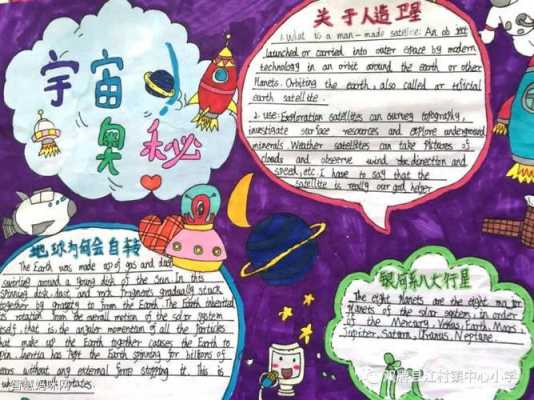 宇宙
奥秘
关于人造卫星
1. What is a man-made satellite: An object
launched or carried into outer space by modern
technology in an orbit around the earth or other
Planets. Orbiting the earth, also called artificial
earth satellite.
2. use: Exploration satellites can survey topography,
investigate surface resources and explore underground
minerals Weather satellites can take Pictures of
clouds and observe wind direction and
speed, etc. I have to say that the
satellite is really our god helper
地球为何会自转
The Earth was made up of gas and dust
swirling around a young disk of the Sun. In this
spinning disk, dust and rock fragments gradually stuck
together by gravity to form the Earth. The Earth inherited
its rotation from the overall motion of the solar system
itself, that is, the angular momentum of all the Particles
that make up the Earth together causes the Earth to
spin. Inertia has kept the Earth spinning for billions of
years without any external force stopping it. This is
why rotates.
银河系八大行星
The eight Planets are the eight major
planets of the solar system, in order
of the Mercury, Venus, Earth, Mars
Jupiter, Saturn, Uranus, Neptune.
智慧妈咪网
县江村镇中心小学